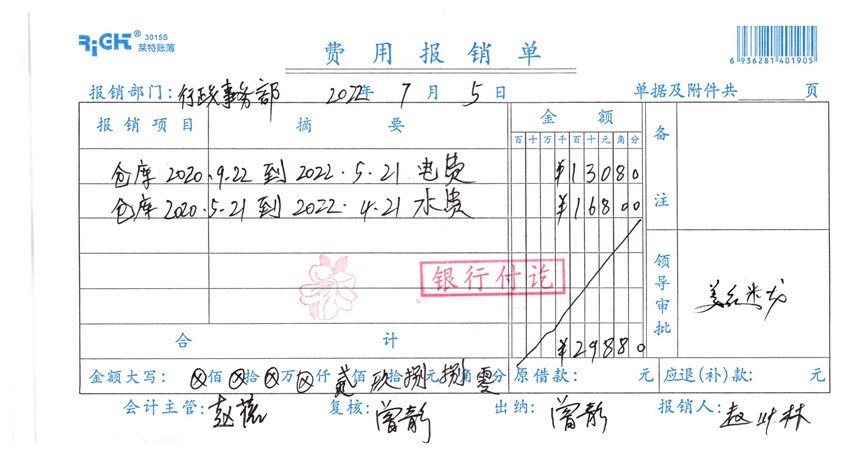 RiGHT® 3015S 莱特账簿
费用报销单
6 936281 401905
报销部门：行政事务部 2022年 7 月 5 日 单据及附件共 页
报销项目 摘要 金额 备注
百 十 万 千 百 十 元 角 分
仓库 2020.9.22 到 2022.5.21 电费 ¥13080
仓库 2020.5.21 到 2022.4.21 水费 ¥16800
银行付讫
领导审批
合计 ¥29880
金额大写：ⓧ佰ⓧ拾ⓧ万ⓧ仟贰佰玖拾捌元捌角零分 原借款： 元 应退（补）款： 元
会计主管： 赵 复核：曾静 出纳：曾静 报销人：赵 林